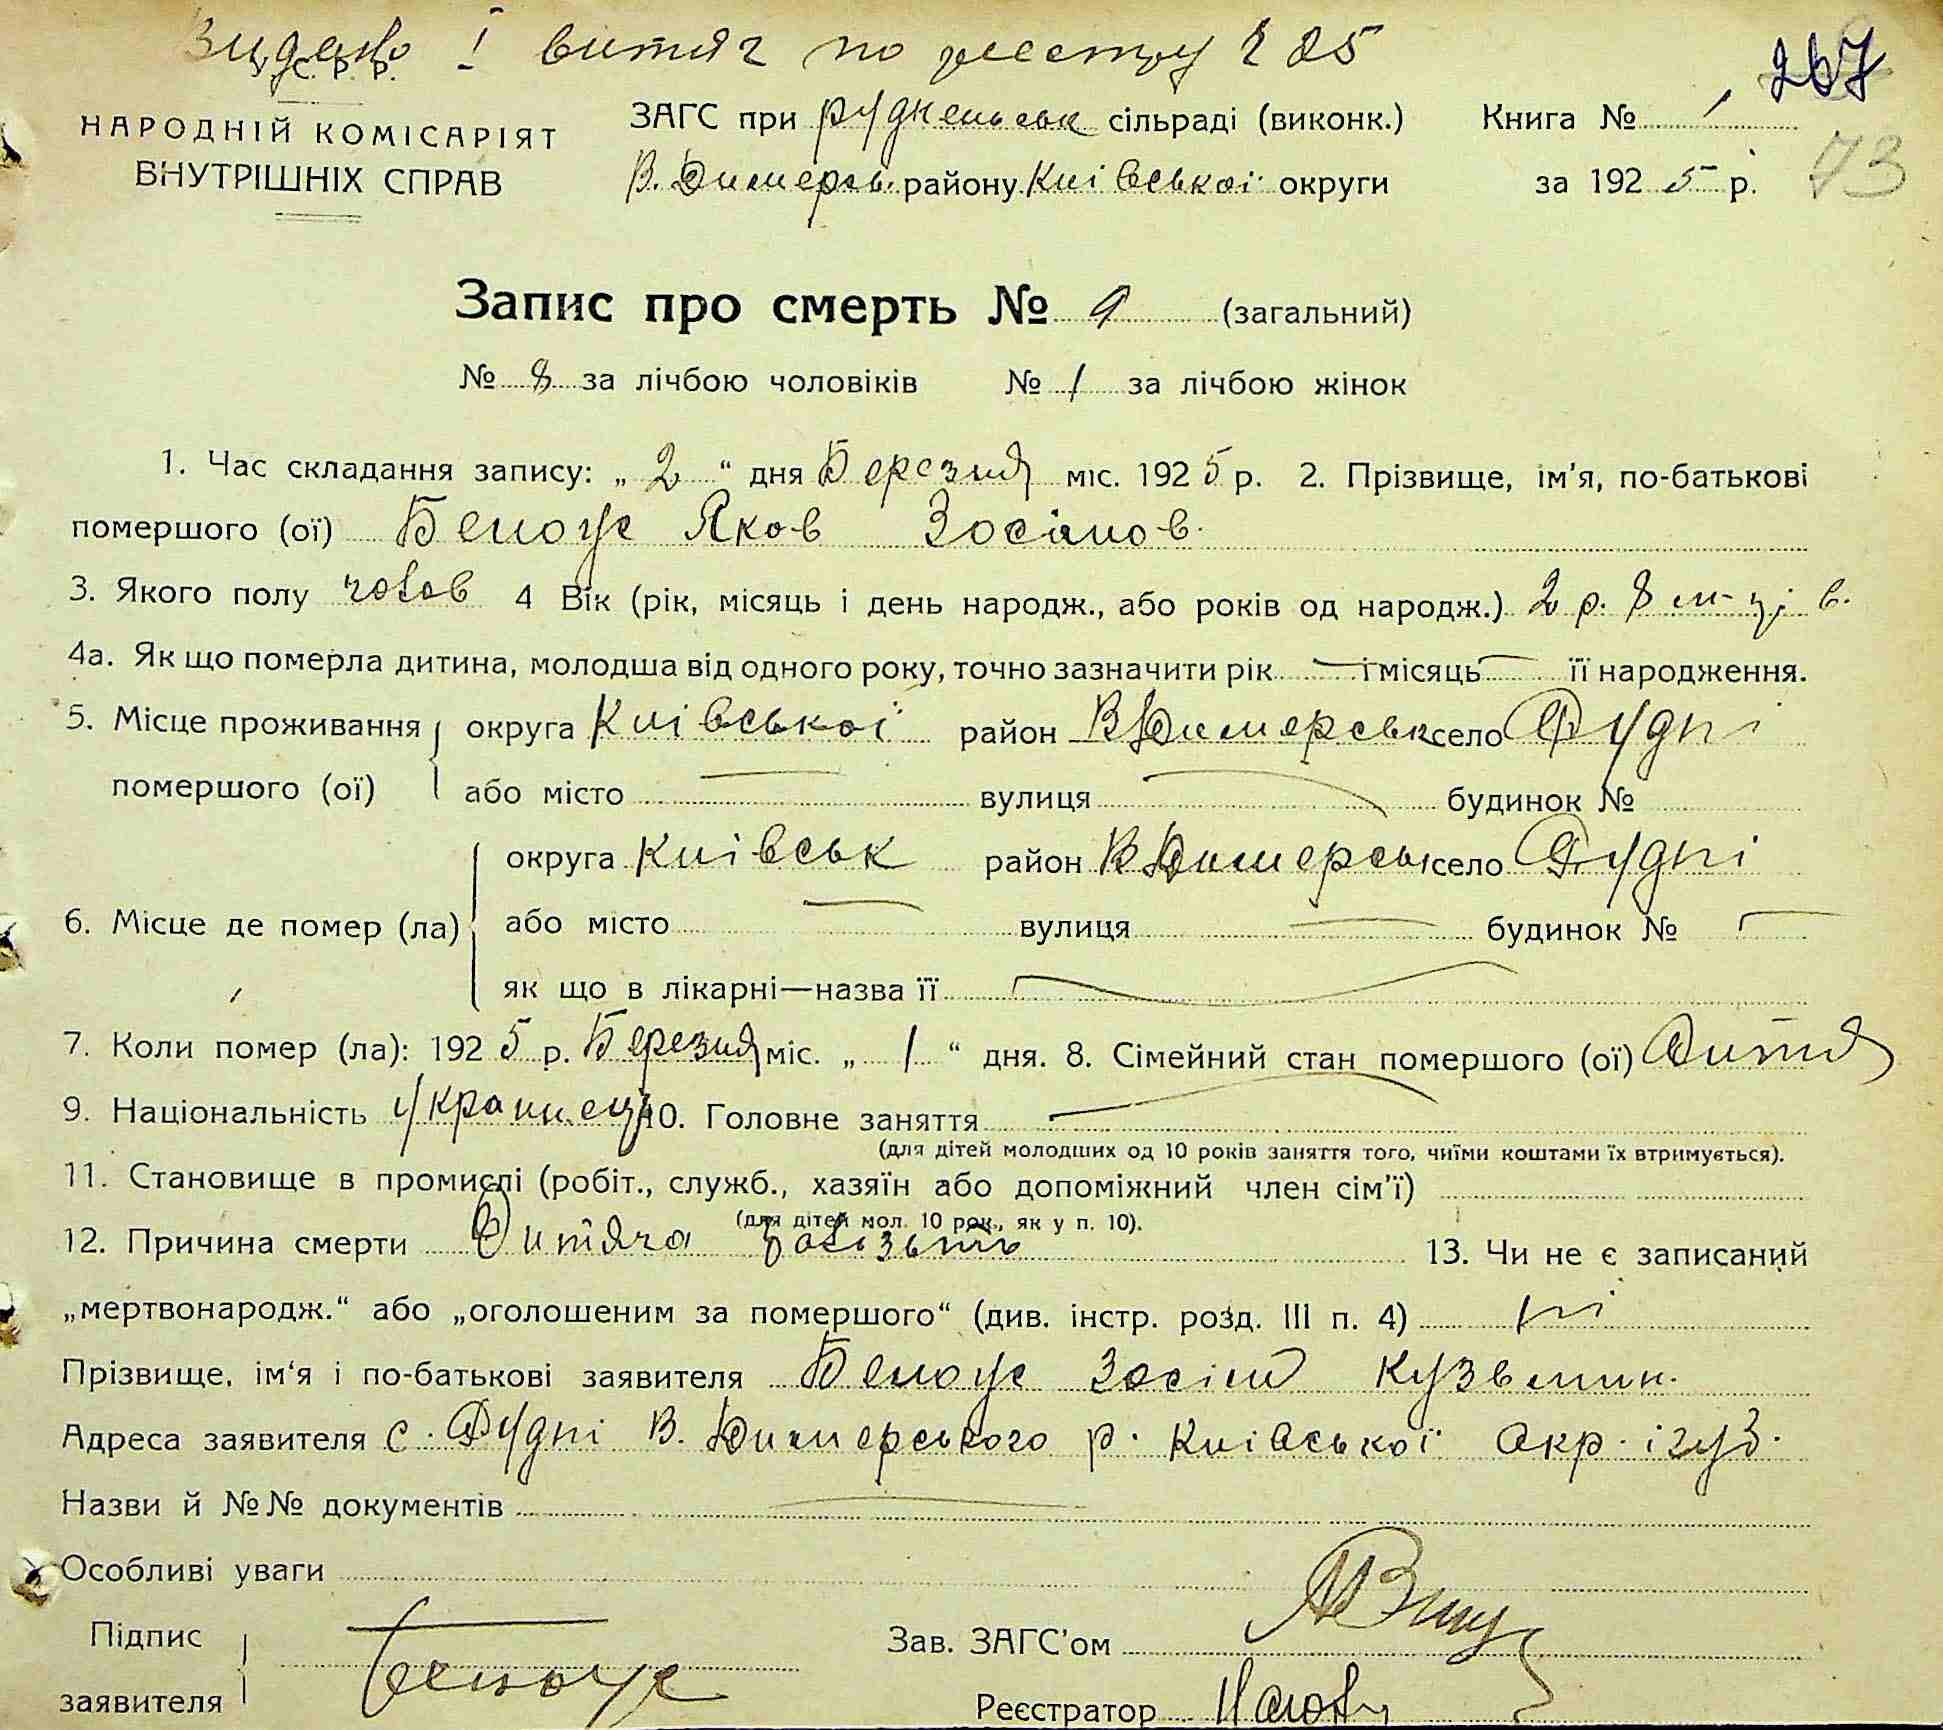 Видано 1 витяг по реєстру № 25
У.С.Р.Р.
267
НАРОДНІЙ КОМІСАРІЯТ ВНУТРІШНІХ СПРАВ
73
ЗАГС при Рудненськ сільраді (виконк.)
В. Димерськ. району Київської округи
Книга № 1
за 1925 р.
Запис про смерть № 9 (загальний)
№ 8 за лічбою чоловіків № 1 за лічбою жінок
1. Час складання запису: „ 2 “ дня Березня міс. 1925 р. 2. Прізвище, ім'я, по-батькові
помершого (ої) Белоус Яков Зосімов.
3. Якого полу чолов 4 Вік (рік, місяць і день народж., або років од народж.) 2 р. 8 м-ців.
4а. Як що померла дитина, молодша від одного року, точно зазначити рік — і місяць — її народження.
5. Місце проживання помершого (ої) округа Київської район В Димерськ село Рудні
або місто — вулиця — будинок №
6. Місце де помер (ла) округа Київськ район В Димерськ село Рудні
або місто — вулиця — будинок № —
як що в лікарні—назва її —
7. Коли помер (ла): 1925 р. Березня міс. „ 1 “ дня. 8. Сімейний стан помершого (ої) Дитя
9. Національність Українец 10. Головне заняття —
(для дітей молодших од 10 років заняття того, чиїми коштами їх втримується).
11. Становище в промислі (робіт., служб., хазяїн або допоміжний член сім'ї)
(для дітей мол. 10 рок., як у п. 10).
12. Причина смерти Дитяча болізьть 13. Чи не є записаний
„мертвонародж.“ або „оголошеним за помершого“ (див. інстр. розд. III п. 4) ні
Прізвище, ім'я і по-батькові заявителя Белоус Зосім Кузьмин.
Адреса заявителя с. Рудні В. Димерського р. Київської окр. і губ.
Назви й №№ документів —
Особливі уваги
Підпис заявителя Белоус
Зав. ЗАГС'ом
Реєстратор